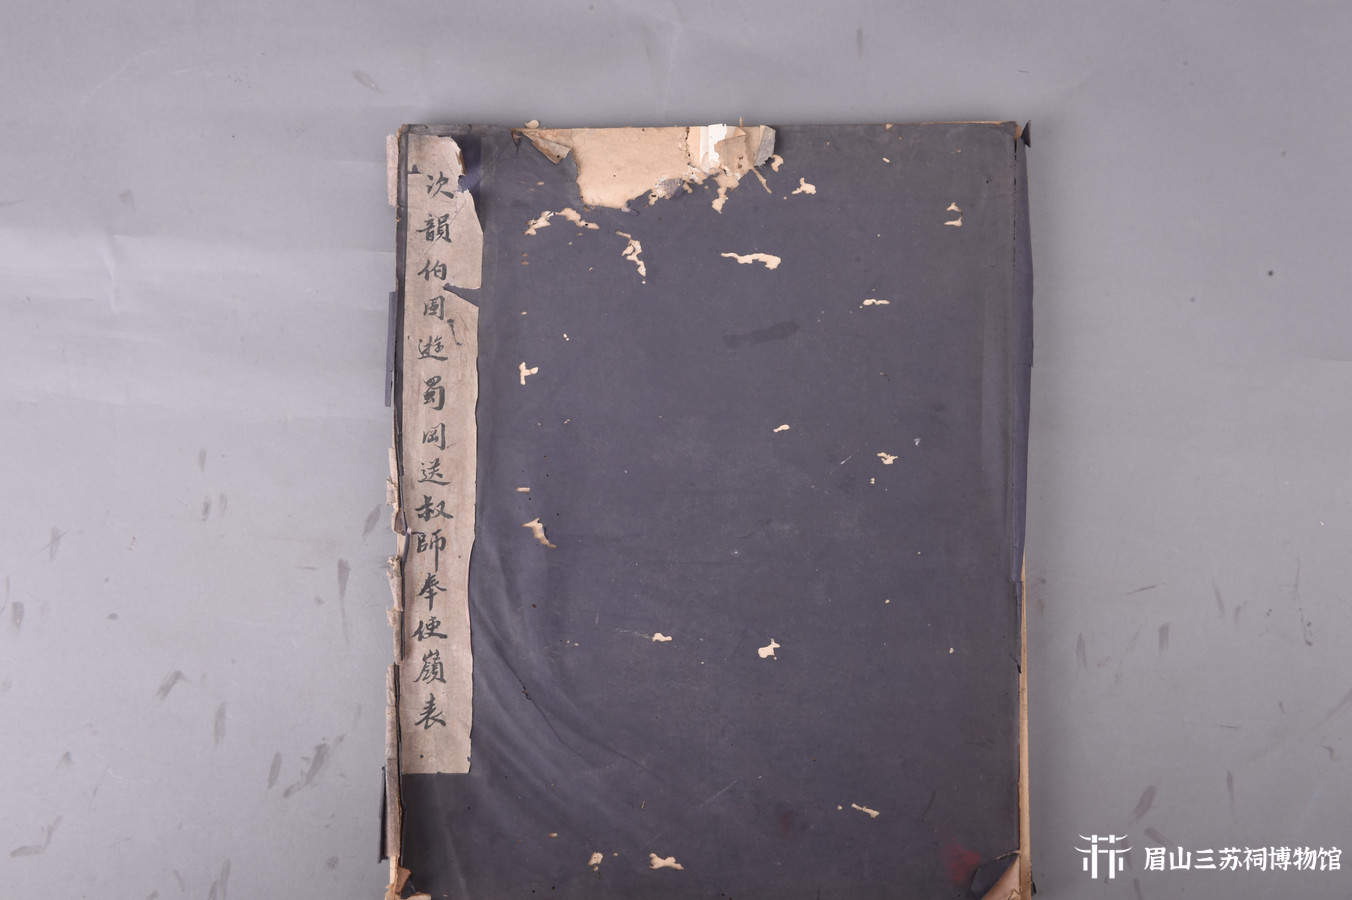 次韻伯固遊蜀岡送叔師奉使嶺表
眉山三苏祠博物馆